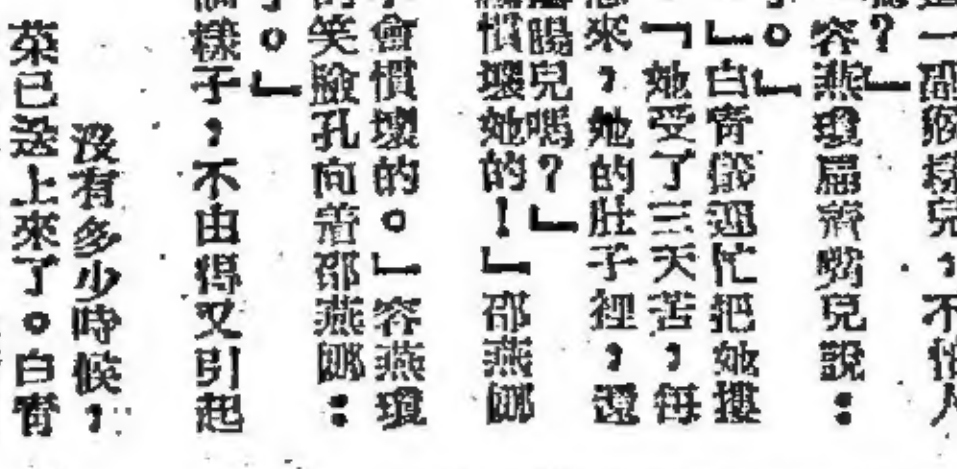 一副猴樣兒，不怕人
？」
容燕瓊扁着嘴兒說：
。」
」白青儀迎忙把她摟
「她受了三天苦，每
來，她的肚子裡，還
腸兒嗎？」
慣壞她的！」邵燕娜
會慣壞的。」容燕瓊
笑臉孔向着邵燕娜：
。」
樣子，不由得又引起
沒有多少時候，
菜已送上來了。白青